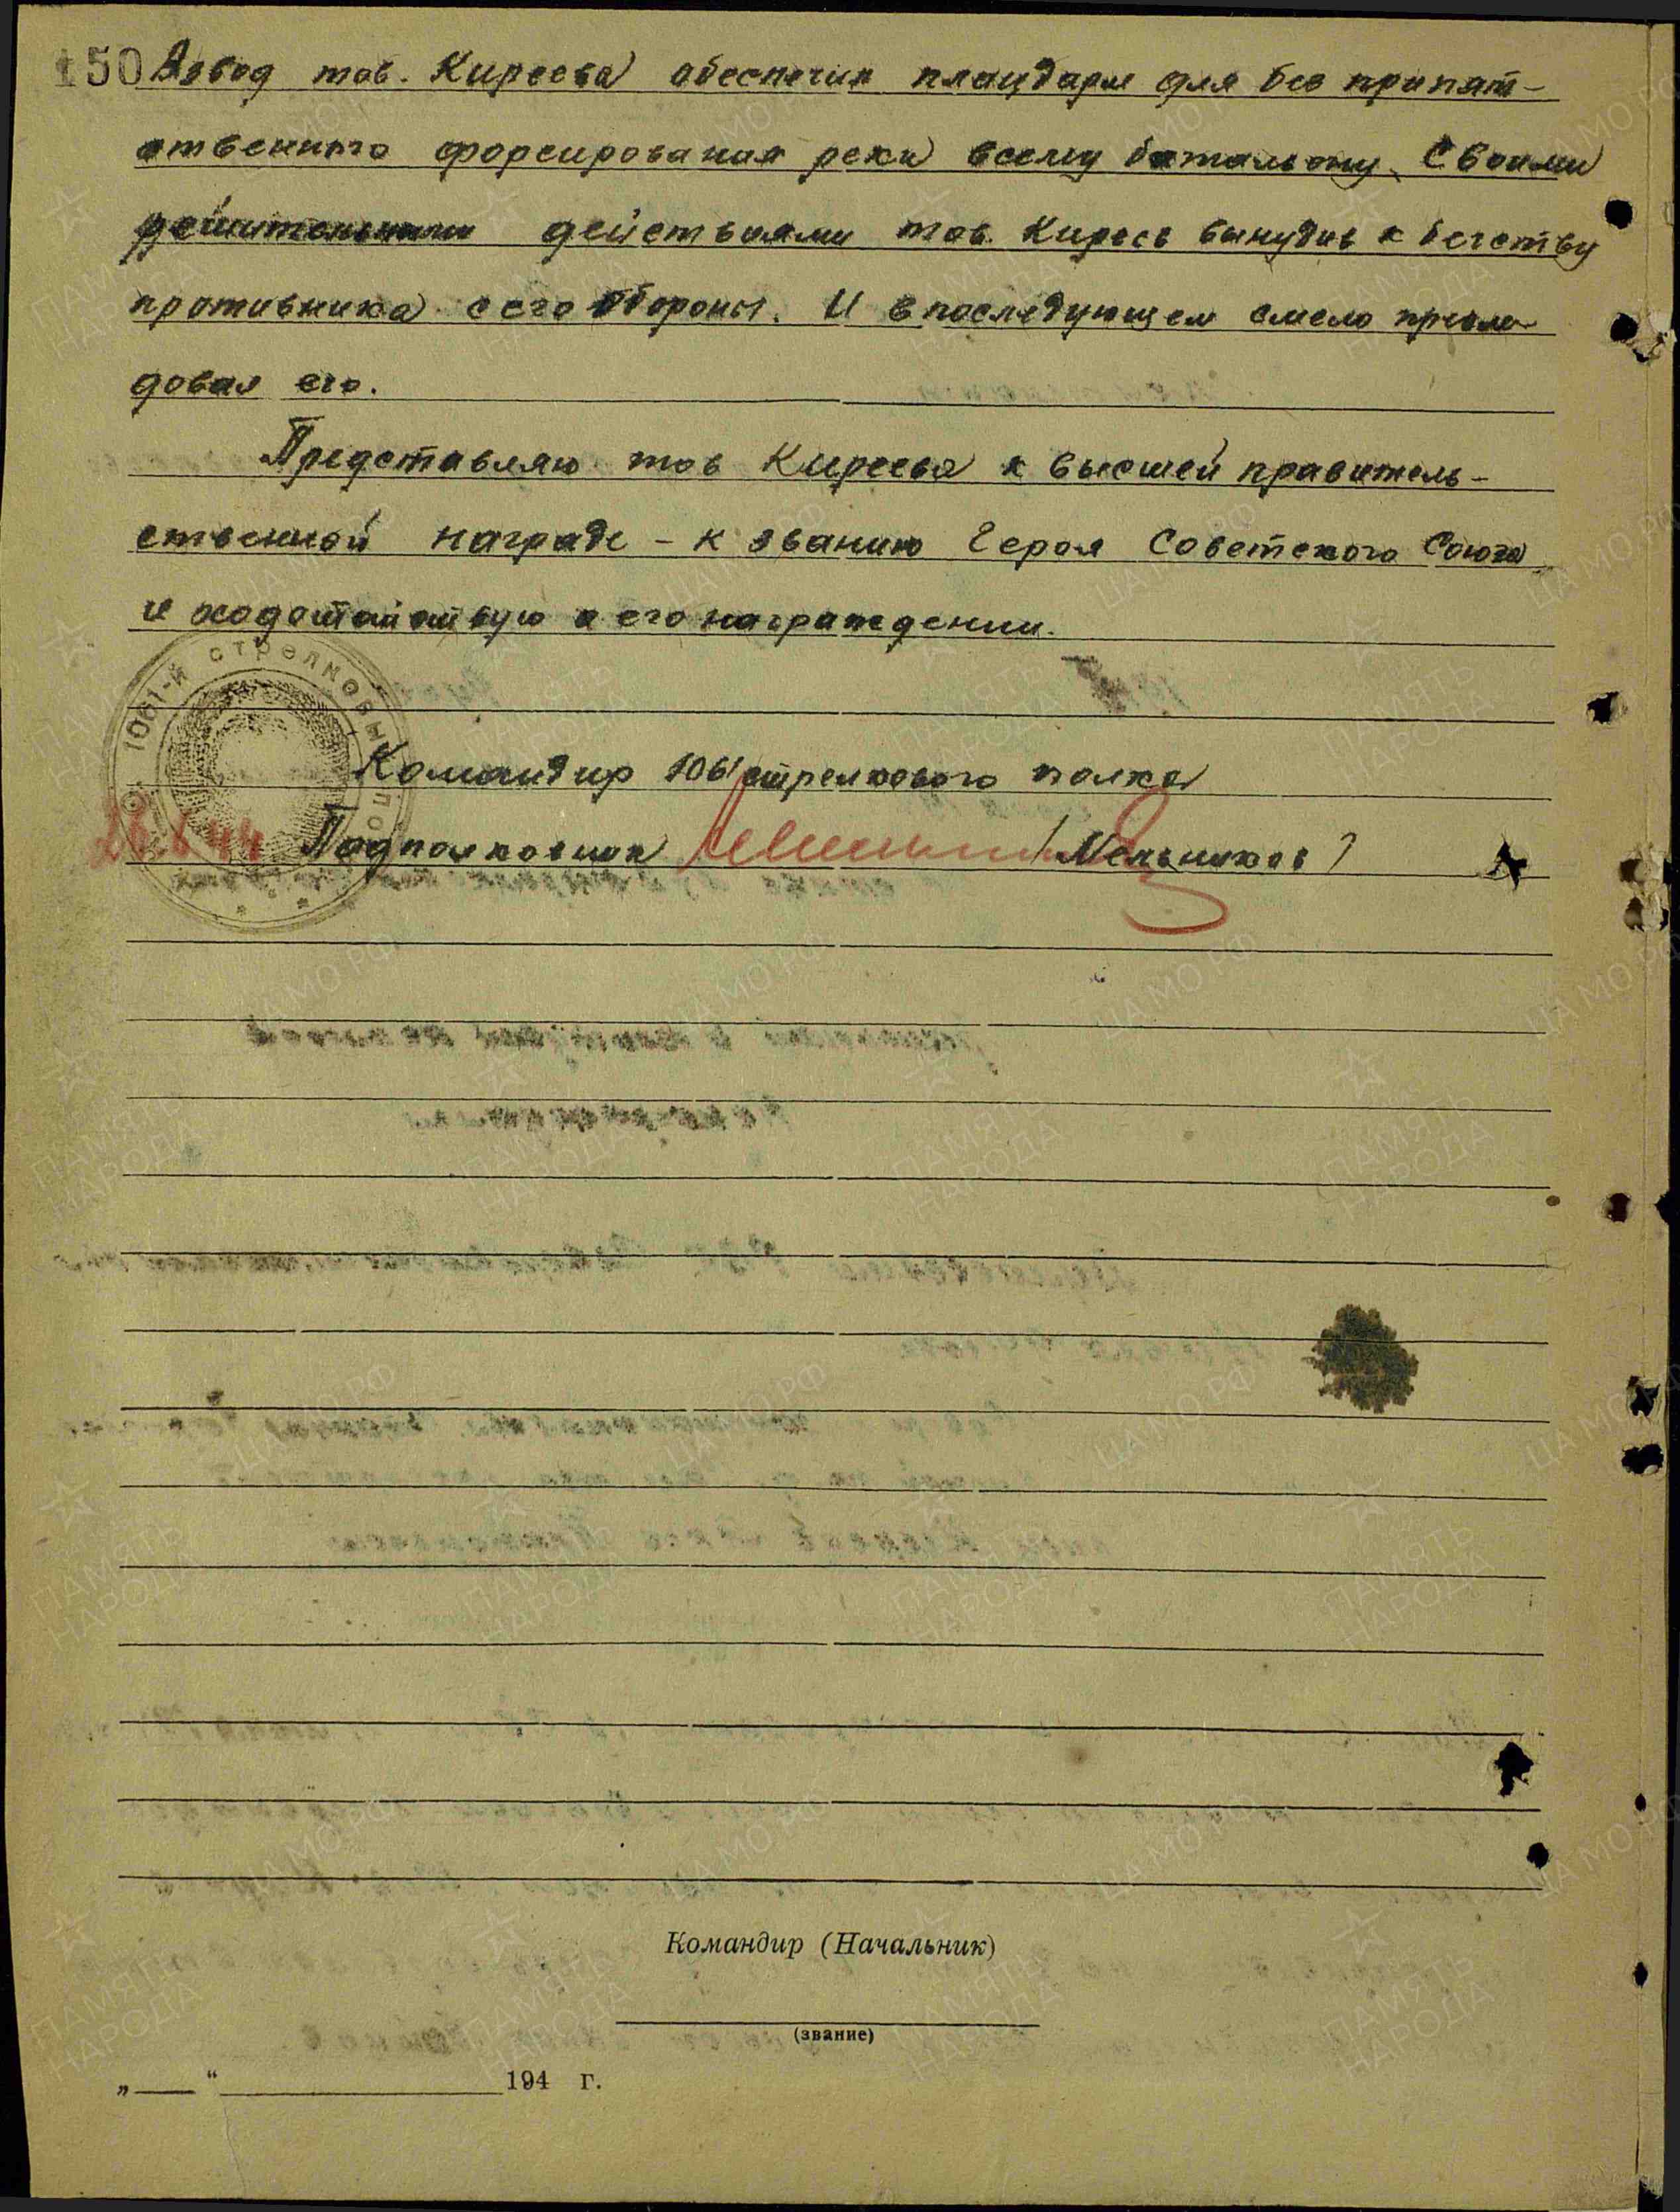 150 Взвод тов. Киреева обеспечил плацдарм для без припят-
ственного форсирования реки всему батальону. Своими
действиями тов. Киреев вынудив к бегству
противника с его обороны. И в последующем смело пресле-
довал его.
Представляю тов Киреева к высшей правитель-
ственной награде - к званию Героя Советского Союза
и ходатайствую о его награждении.
1061-й стрелковый по
Командир 1061 стрелкового полка
Подполковник /Мельников/
Командир (Начальник)
(звание)
„ “ 194 г.